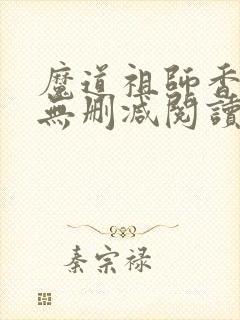 魔道祖師香
無刪減閱讀
秦宗禄